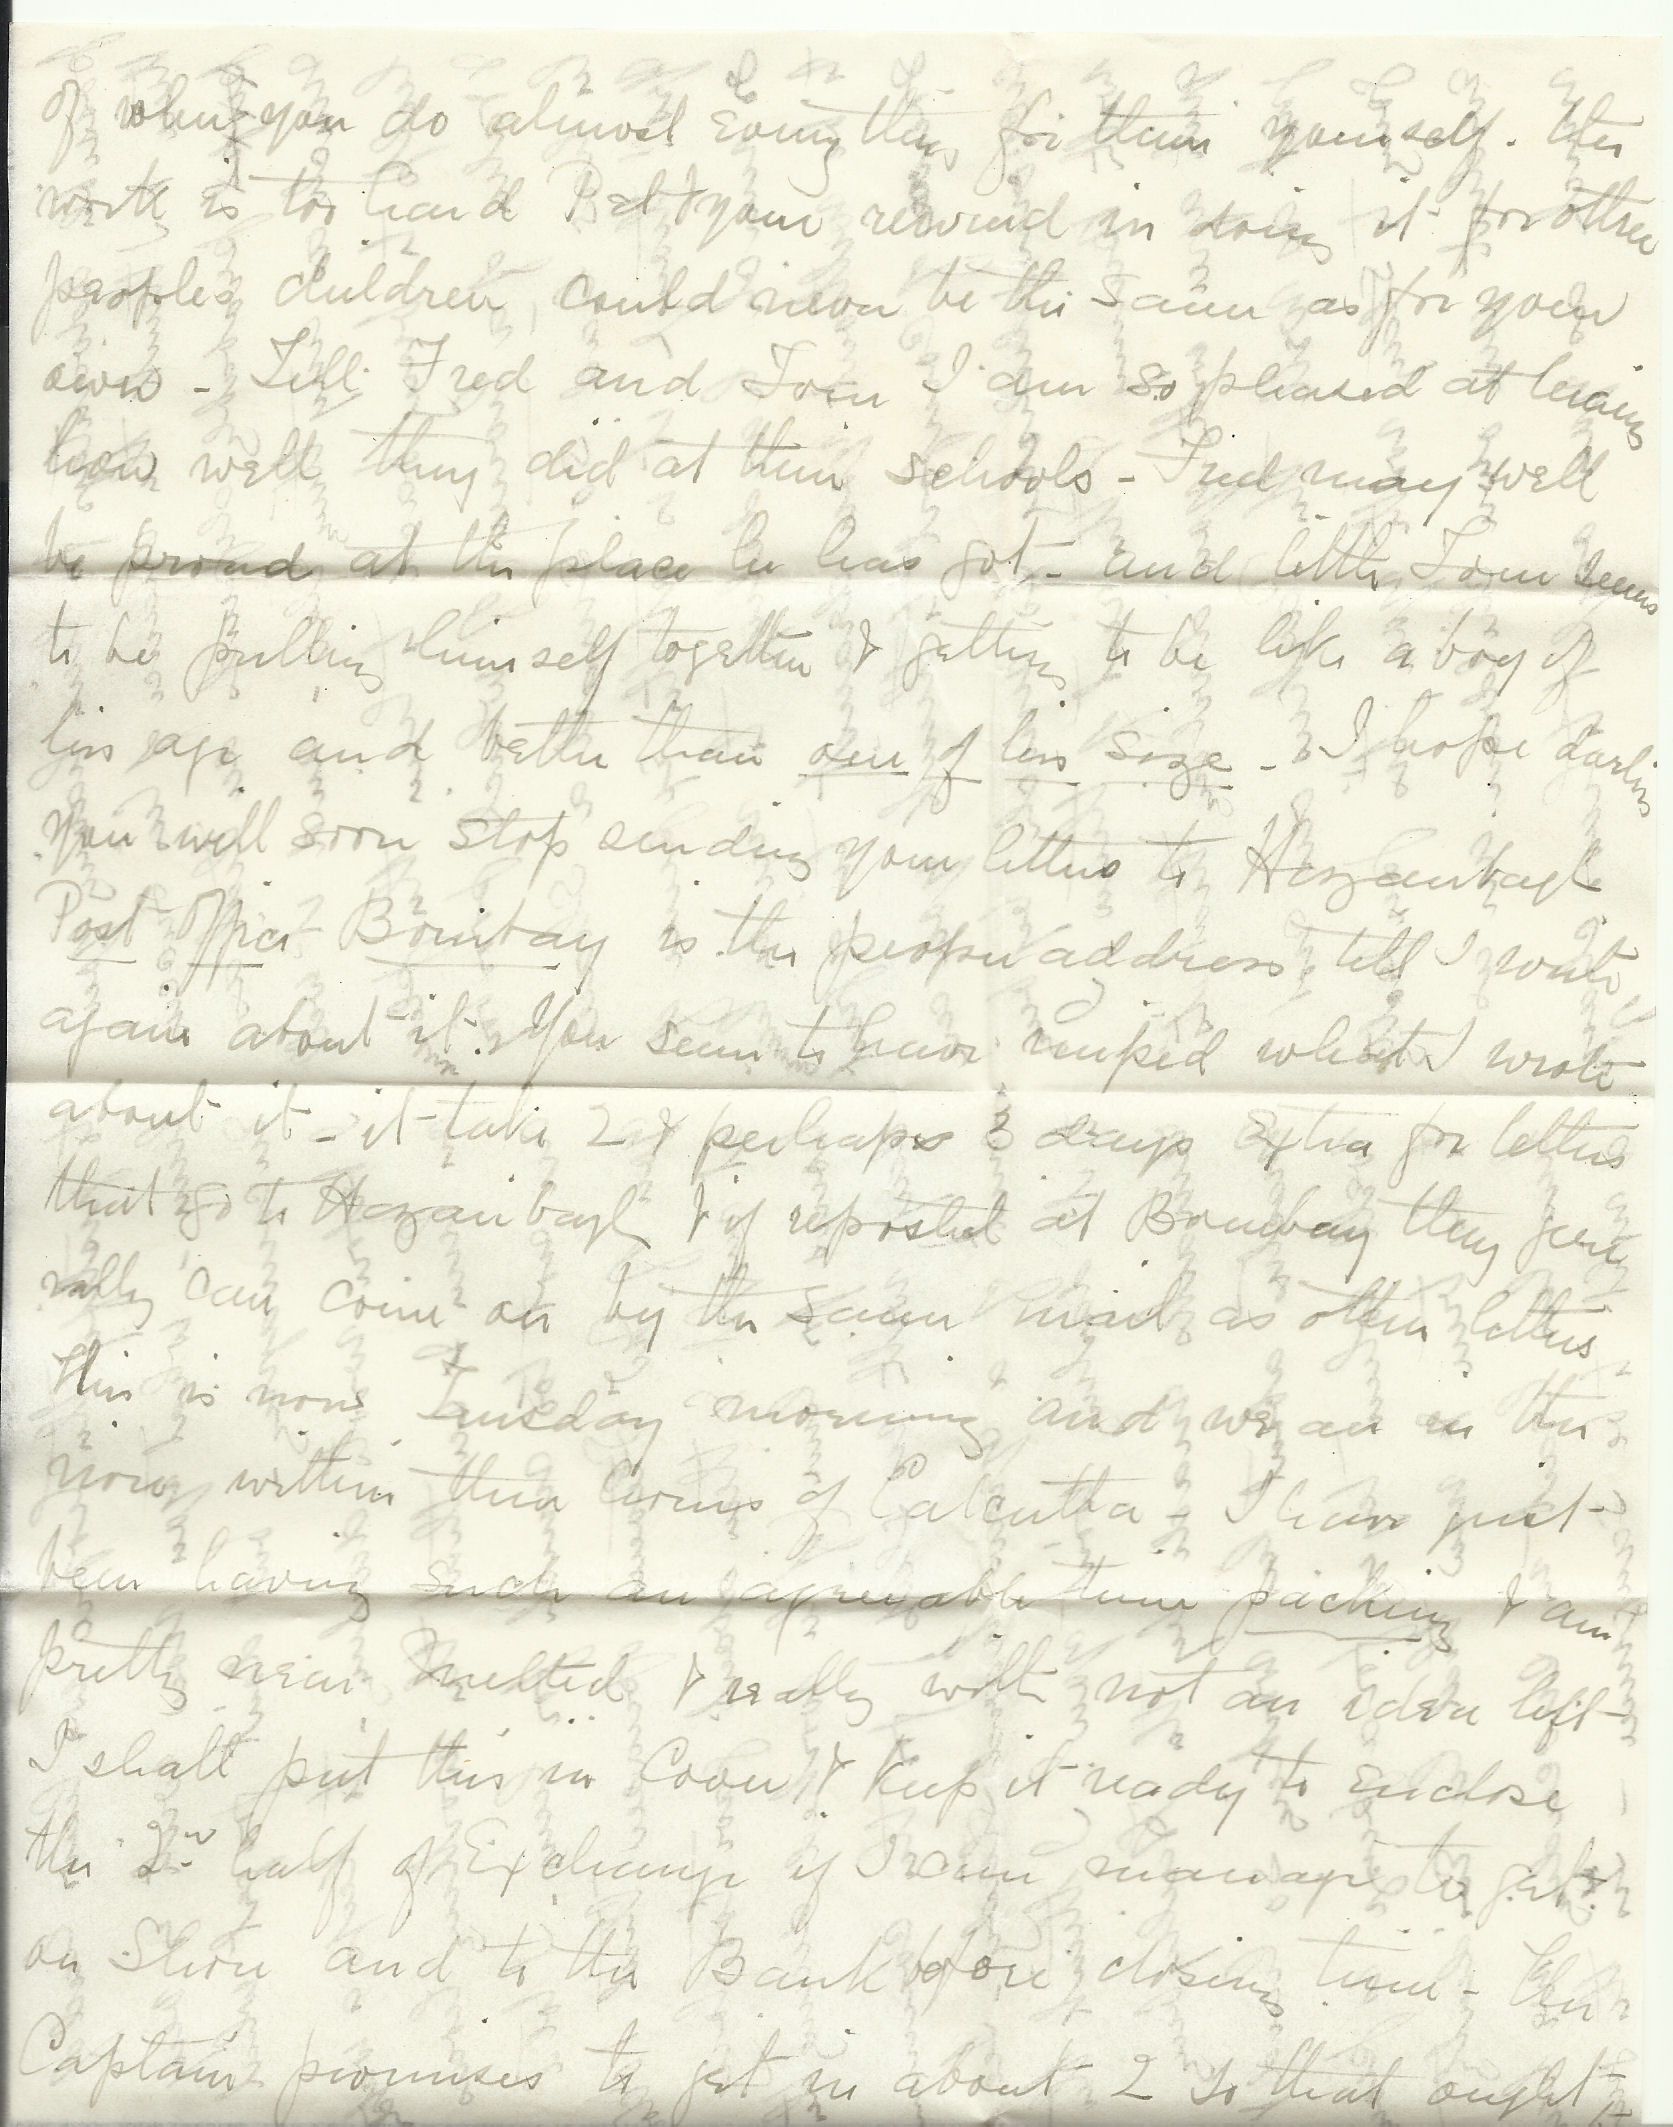 of when you do almost everything for them yourself. the
work is too hard Pet & your reward in doing it for other
peoples children, could never be the same as for your
own - Tell Fred and Tom I am so pleased at hearing
how well they did at their schools - Fred may well
be proud at the place he has got - and little Tom seems
to be pulling himself together & getting to be like a boy of
his age and better than one of his size - I hope darling
you will soon stop sending your letters to Hazaribagh
Post Office Bombay is the proper address till I write
again about it. You seem to have what I wrote
about it - it take 2 & perhaps 3 days extra for letters
that go to Hazaribagh & if reposted at Bombay they gene
rally can come on by the same mail as other letters
This is now Tuesday morning and we are in the
river within three hours of Calcutta - I have just
been having such an agreeable time packing & am
pretty near melted & really with not an idea left -
I shall put this in Cover & keep it ready to enclose
the 2nd half of Exchange if I can manage to get
on Shore and to the Bank before closing time - the
Captain promises to get in about 2 so that ought